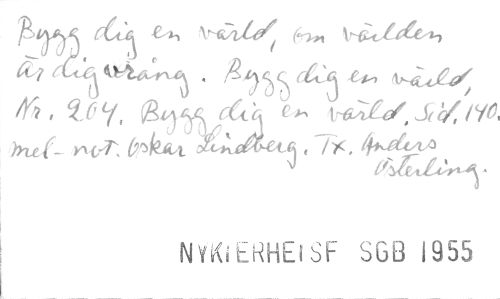 Bygg dig en värld, om världen
är dig vrång. Bygg dig en värld,
Nr. 204. Bygg dig en värld. Sid. 140.
mel-not. Oskar Lindberg. Tx. Anders
Österling.
NYKTERHETSF SGB 1955